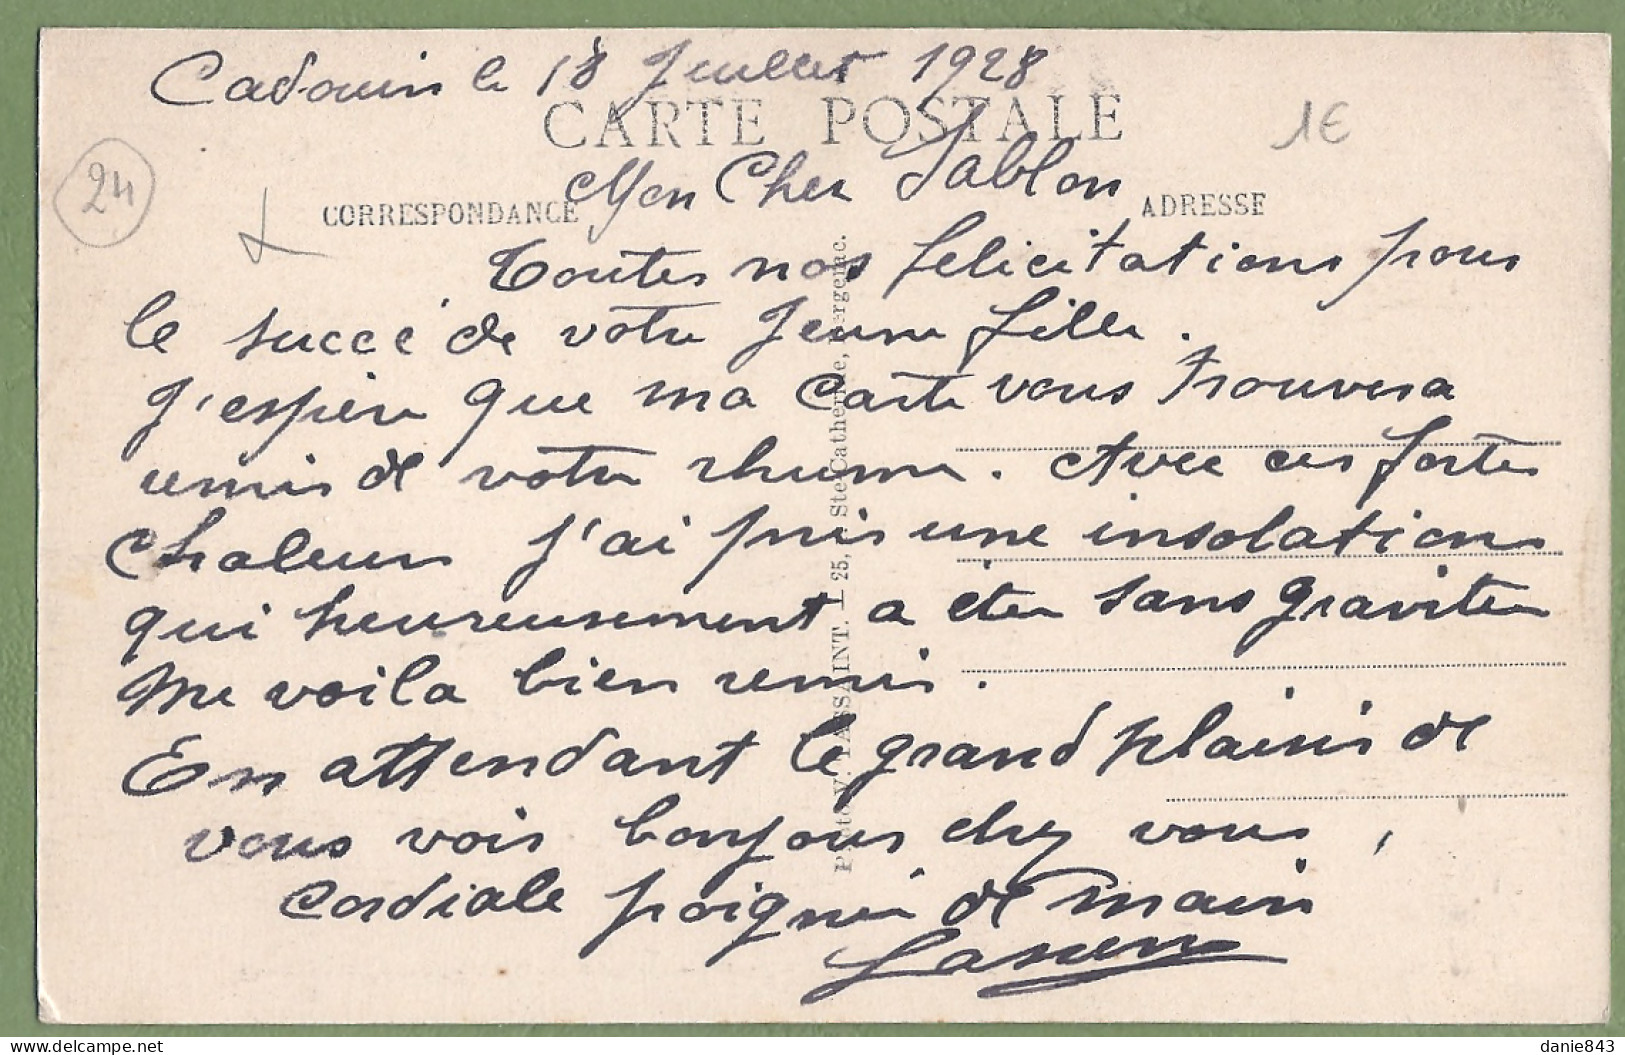 Cadouin le 18 Juillet 1928
CARTE POSTALE
1€
24
Mon Cher Sablon
CORRESPONDANCE
ADRESSE
Toutes nos felicitations pour
le succé de votre Jeune fille.
J'espère que ma carte vous trouvera
remis de votre rhume. Avec ces fortes
chaleurs j'ai pris une insolation
qui heureusement a éter sans graviter
Me voila bien remis.
En attendant le grand plaisir de
vous voir bonjour chez vous,
Cordiale poignée de main
Photo V. TASSAINT. 25, Ste Catherine, Bergerac.
www.delcampe.net
danie843